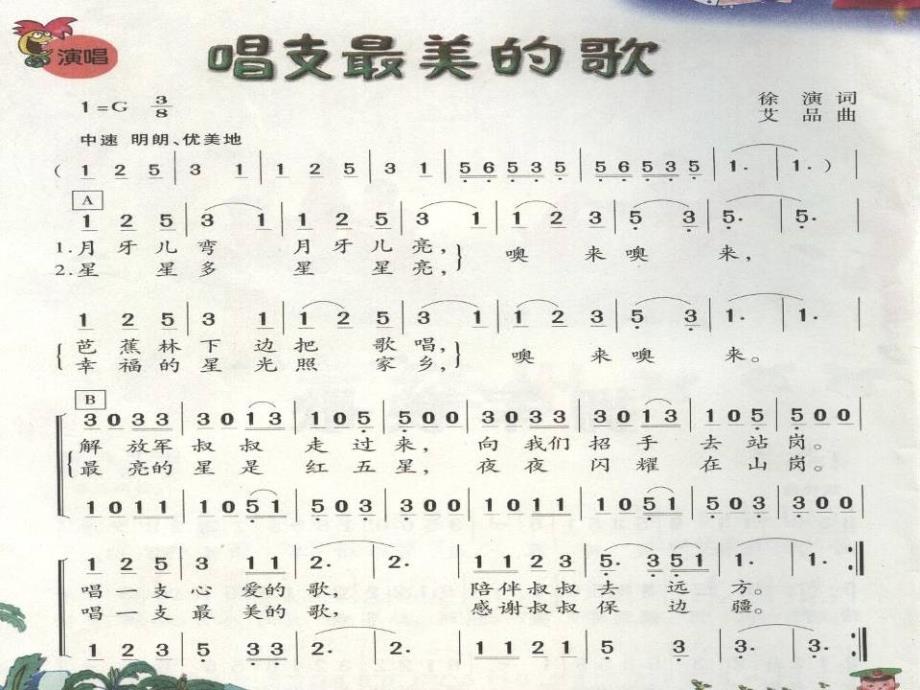 演唱
唱支最美的歌
1=G 3/8
徐演词
艾品曲
中速 明朗、优美地
( 1 2 5 | 3 1 | 1 2 5 | 3 1 | 5 6 5 3 5 | 5 6 5 3 5 | 1· | 1· )
A
1 2 5 | 3 1 | 1 2 5 | 3 1 | 1 2 3 | 5 3 | 5· | 5· |
1.月牙儿弯 月牙儿亮, 噢来噢来,
2.星星多 星星亮,
1 2 5 | 3 1 | 1 2 5 | 3 1 | 1 2 3 | 5 3 | 1· | 1· |
芭蕉林下边把歌唱, 噢来噢来。
幸福的星光照家乡,
B
3 0 3 3 | 3 0 1 3 | 1 0 5 | 5 0 0 | 3 0 3 3 | 3 0 1 3 | 1 0 5 | 5 0 0 |
解放军叔叔走过来, 向我们招手去站岗。
最亮的星是红五星, 夜夜闪耀在山岗。
1 0 1 1 | 1 0 5 1 | 5 0 3 | 3 0 0 | 1 0 1 1 | 1 0 5 1 | 5 0 3 | 3 0 0 |
1 2 5 | 3 1 1 | 2· | 2· | 1 1 2 3 | 5· | 3 5 1 | 1· | 1· :|
唱支心爱的歌, 陪伴叔叔去远方。
唱一支最美的歌, 感谢叔叔保边疆。
1 2 2 3 | 5 | 3 3 | 2· | 2· | 1 1 2 3 | 5· | 5 3 | 3· | 3· :|